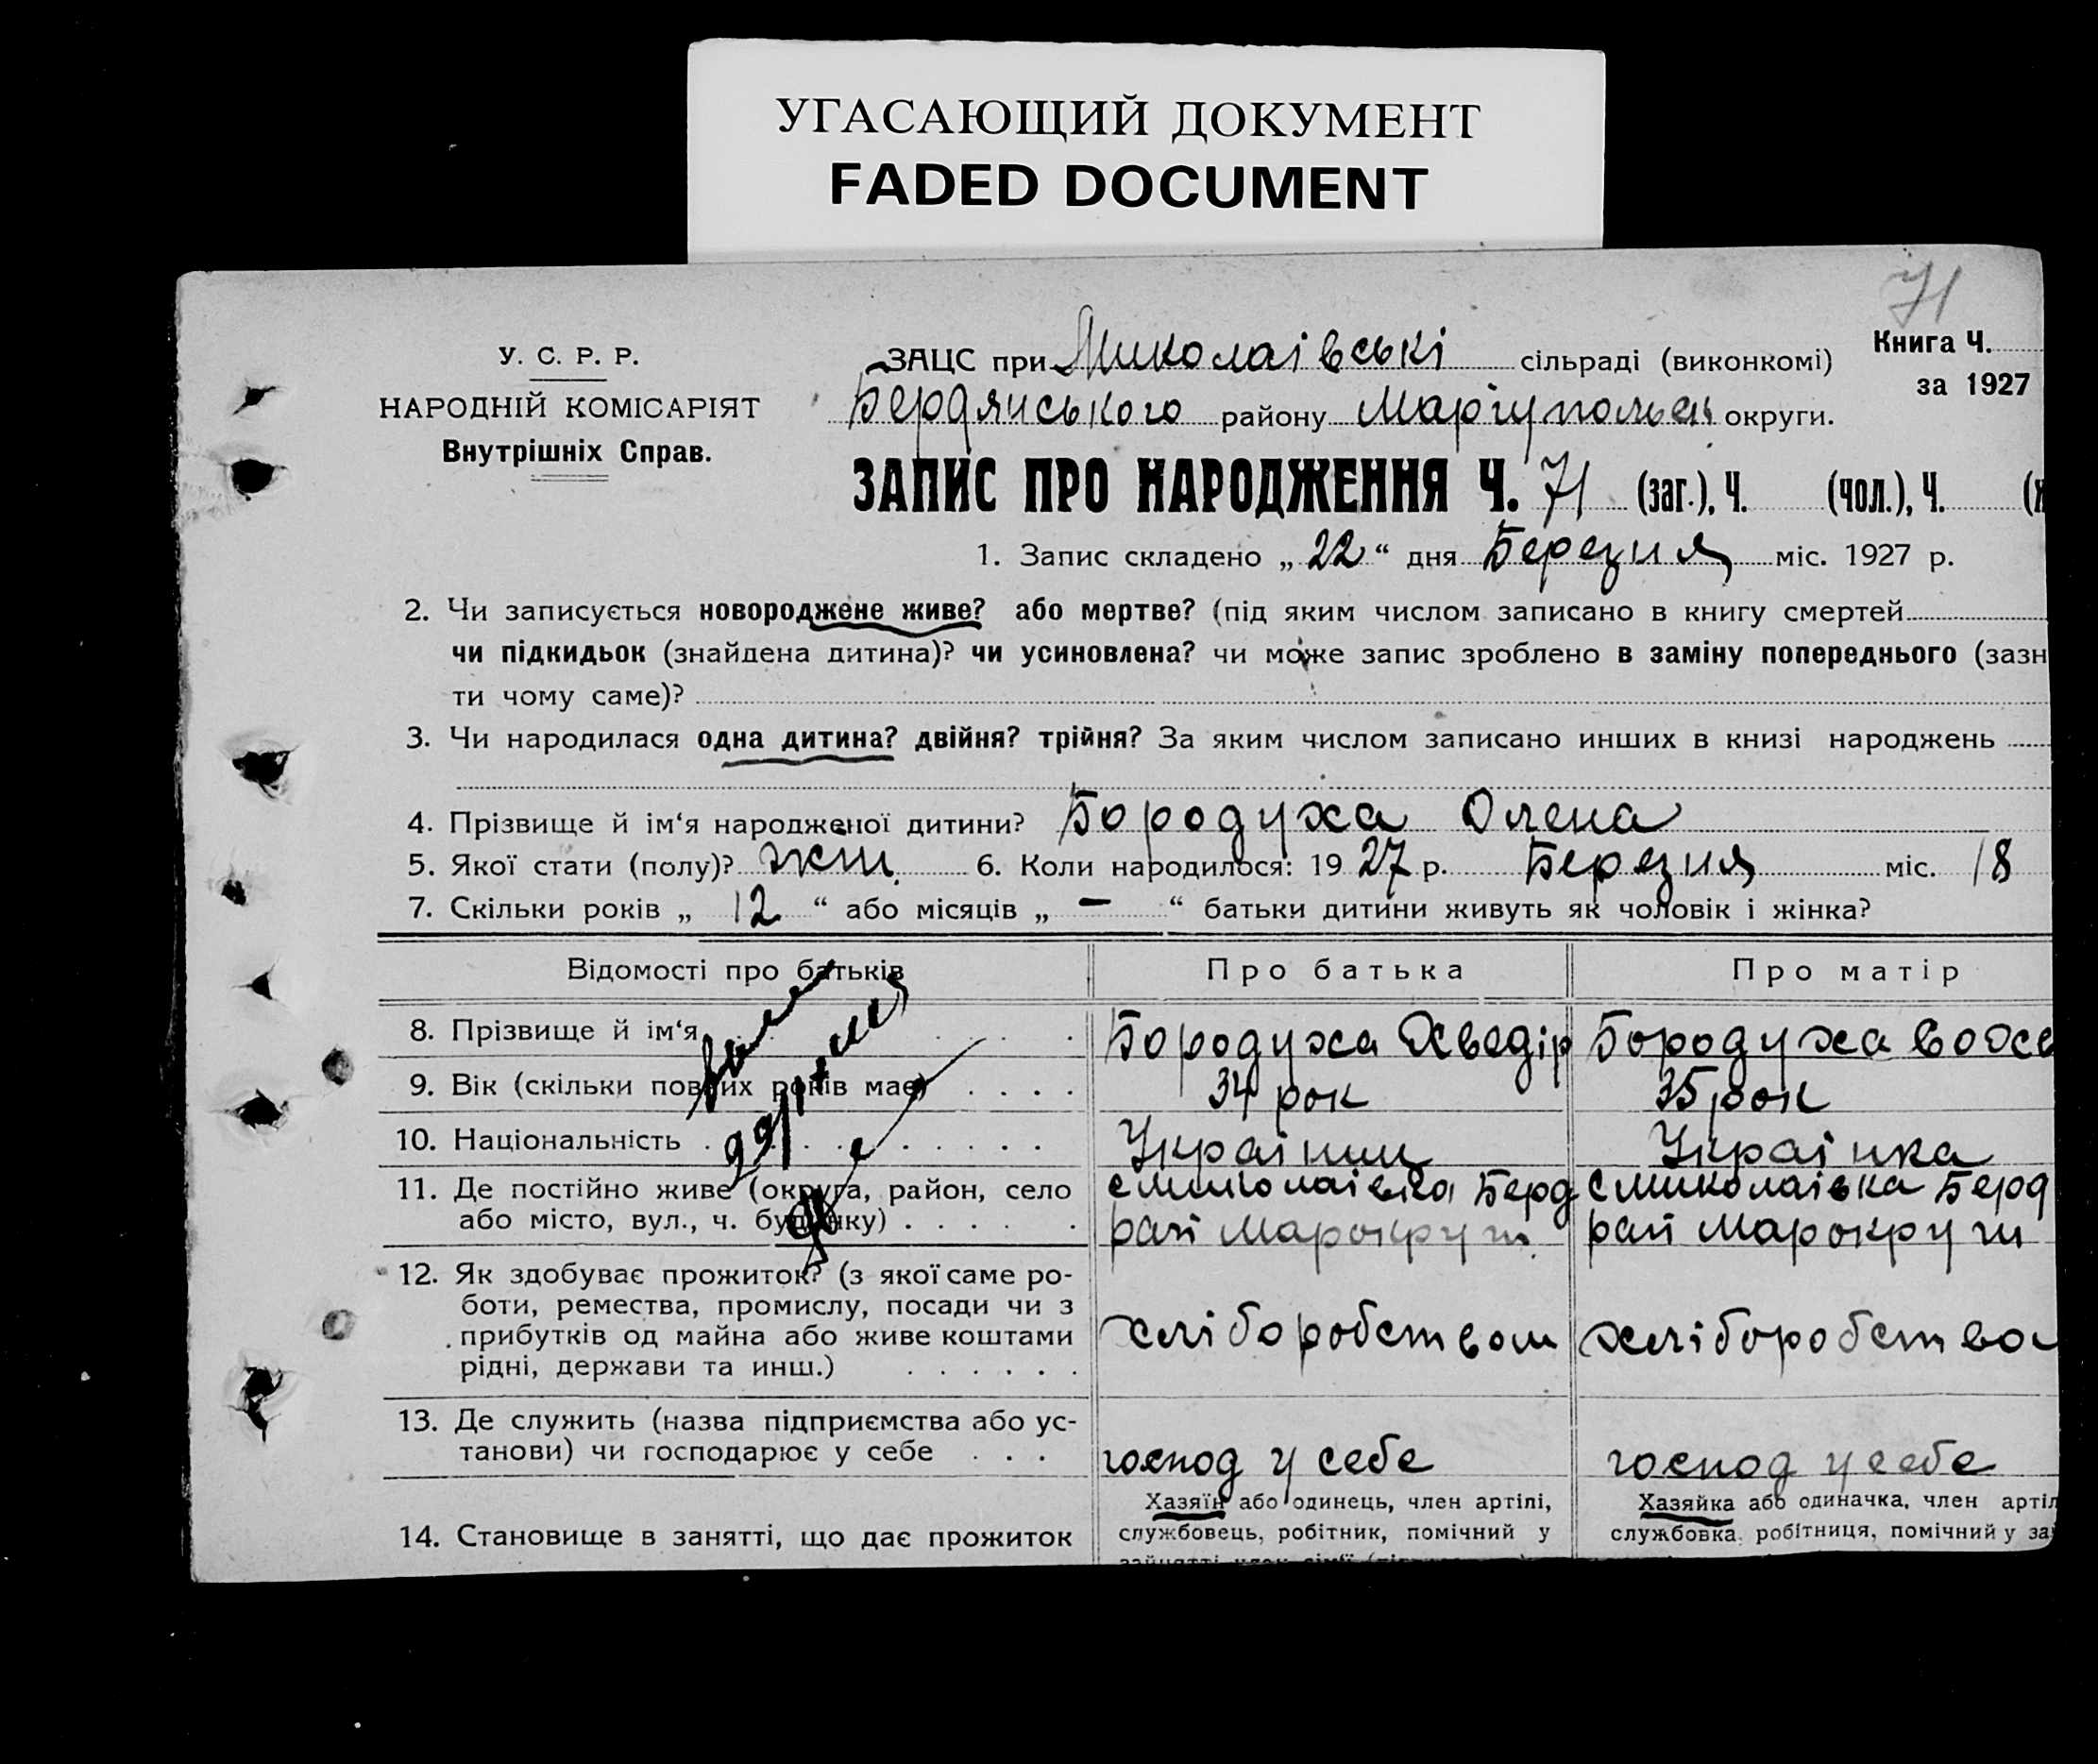 УГАСАЮЩИЙ ДОКУМЕНТ
FADED DOCUMENT
71
У. С. Р. Р.
НАРОДНІЙ КОМІСАРІЯТ
Внутрішніх Справ.
ЗАЦС при Миколаівські сільраді (виконкомі)
Книга Ч.
за 1927
Бердянського району Маріупольськ округи.
ЗАПИС ПРО НАРОДЖЕННЯ Ч. 71 (заг.), Ч. (чол.), Ч. (ж
1. Запис складено „ 22 “ дня Березня міс. 1927 р.
2. Чи записується новороджене живе? або мертве? (під яким числом записано в книгу смертей
чи підкидьок (знайдена дитина)? чи усиновлена? чи може запис зроблено в заміну попереднього (зазн
ти чому саме)?
3. Чи народилася одна дитина? двійня? трійня? За яким числом записано инших в книзі народжень
4. Прізвище й ім‘я народженої дитини? Бородуха Олена
5. Якої стати (полу)? жін. 6. Коли народилося: 19 27 р. Березня міс. 18
7. Скільки років „ 12 “ або місяців „ — “ батьки дитини живуть як чоловік і жінка?
Відомості про батьків Про батька Про матір
8. Прізвище й ім‘я Бородуха Хведір Бородуха
9. Вік (скільки повних років має) 34 рок 35 рок
10. Національність Украінець Украінка
11. Де постійно живе (округа, район, село с Миколаівка Берд с Миколаівка Берд
або місто, вул., ч. будинку) рай Марокруги рай Марокруги
12. Як здобуває прожиток? (з якої саме ро-
боти, ремества, промислу, посади чи з
прибутків од майна або живе коштами хліборобством хліборобство
рідні, держави та инш.)
13. Де служить (назва підприємства або ус-
танови) чи господарює у себе господ у себе господ у себе
14. Становище в занятті, що дає прожиток
Хазяїн або одинець, член артілі,
службовець, робітник, помічний у
Хазяйка або одиначка, член артіл
службовка, робітниця, помічний у за